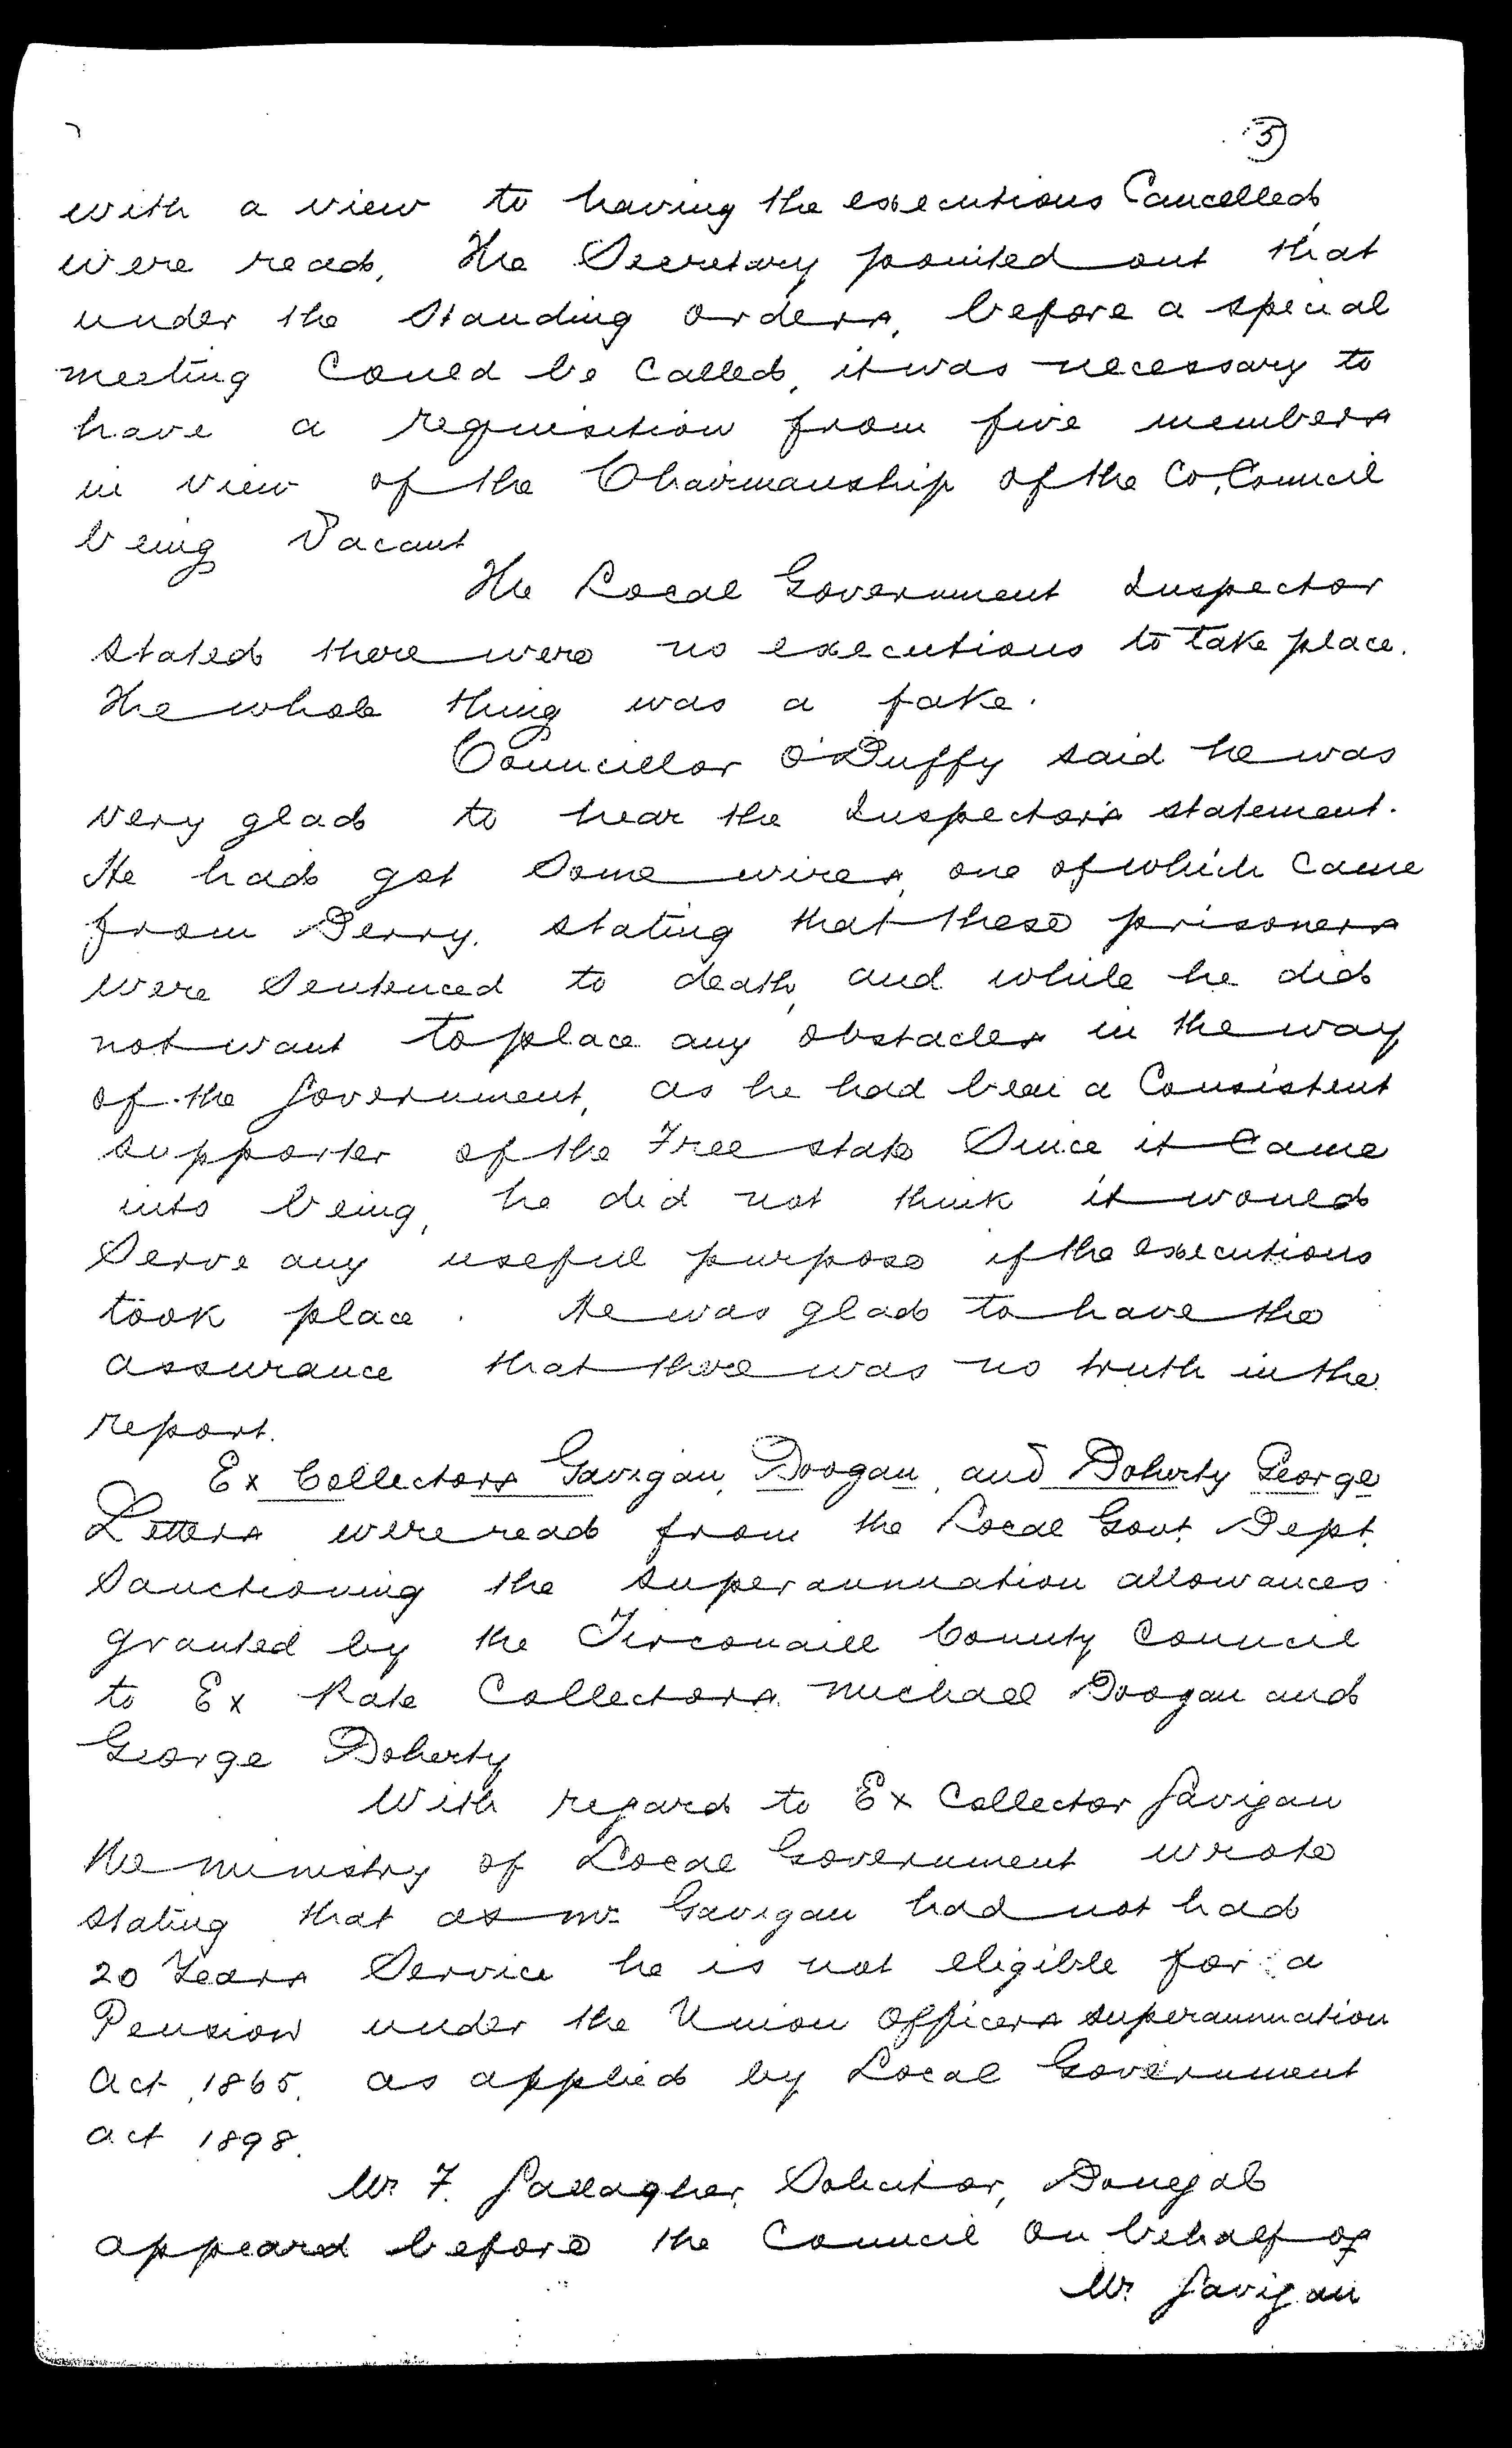 5
with a view to having the executions Cancelled
were read, The Secretary pointed out that
under the Standing Orders, before a special
meeting Could be Called, it was necessary to
have a requisition from five members
in view of the Chairmanship of the Co, Council
being Vacant
The Local Government Inspector
stated there were no executions to take place.
The whole thing was a fake.
Councillor O'Duffy said he was
very glad to hear the Inspector's statement.
He had got Some wires, one of which Came
from Derry, stating that these prisoners
were Sentenced to death, and while he did
not want to place any obstacles in the way
of the Government, as he had been a Consistent
supporter of the Free State Since it Came
into being, he did not think it would
Serve any useful purpose if the executions
took place. He was glad to have the
assurance that there was no truth in the
report.
Ex Collectors Gavigan, Doogan, and Doherty George
Letters were read from the Local Govt. Dept.
Sanctioning the superannuation allowances
granted by the Tirconaill County Council
to Ex Rate Collectors Michael Doogan and
George Doherty
With regard to Ex Collector Gavigan
the Ministry of Local Government wrote
stating that as Mr. Gavigan had not had
20 Years Service he is not eligible for a
Pension under the Union Officers superannuation
Act, 1865, as applied by Local Government
Act 1898.
Mr. F. Gallagher, Solicitor, Donegal
appeard before the Council on behalf of
Mr. Gavigan